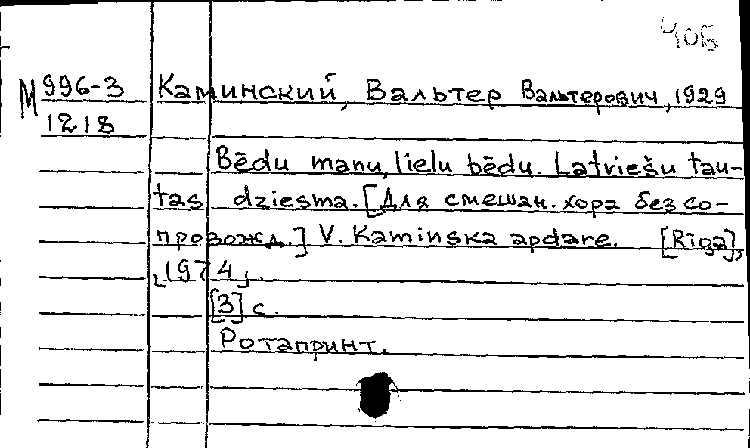 40Б
М 996-3 Каминский, Вальтер Вальтерович, 1929
1218
Bēdu manu, lielu bēdu. Latviešu tau-
tas dziesma. [Для смешан. хора без со-
провожд.] V. Kaminska apdare. [Rīga],
[1974].
[3] с.
Ротапринт.